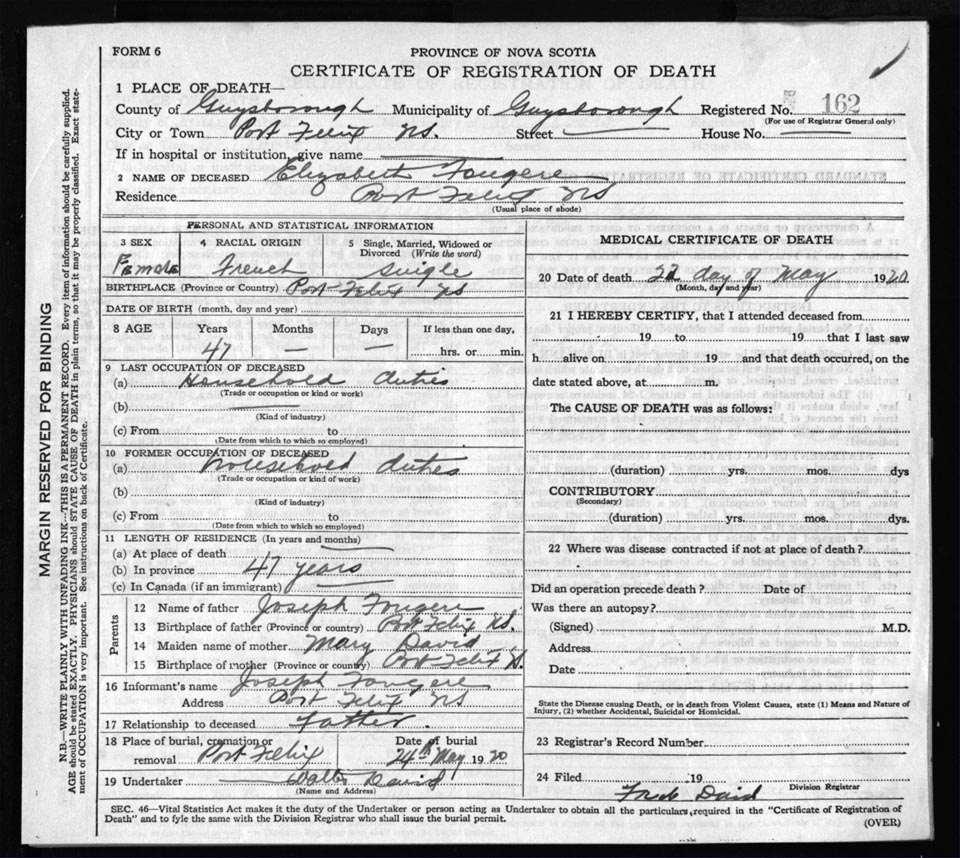 FORM 6
PROVINCE OF NOVA SCOTIA
CERTIFICATE OF REGISTRATION OF DEATH
1 PLACE OF DEATH—
County of Guysborough Municipality of Guysborough Registered No. 162
(For use of Registrar General only)
City or Town Port Felix NS. Street House No.
If in hospital or institution, give name
2 NAME OF DECEASED Elizabeth Fougere
Residence Port Felix NS
(Usual place of abode)
PERSONAL AND STATISTICAL INFORMATION
3 SEX 4 RACIAL ORIGIN 5 Single, Married, Widowed or Divorced (Write the word)
Female French Single
BIRTHPLACE (Province or Country) Port Felix NS
DATE OF BIRTH (month, day and year)
8 AGE Years Months Days If less than one day,
47 — — hrs. or min.
9 LAST OCCUPATION OF DECEASED
(a) Household duties
(Trade or occupation or kind or work)
(b)
(Kind of industry)
(c) From to
(Date from which to which so employed)
10 FORMER OCCUPATION OF DECEASED
(a) Household duties
(Trade or occupation or kind of work)
(b)
(Kind of industry)
(c) From to
(Date from which to which so employed)
11 LENGTH OF RESIDENCE (In years and months)
(a) At place of death
(b) In province 47 years
(c) In Canada (if an immigrant)
Parents
12 Name of father Joseph Fougere
13 Birthplace of father (Province or country) Port Felix NS.
14 Maiden name of mother Mary David
15 Birthplace of mother (Province or country) Port Felix N.
16 Informant's name Joseph Fougere
Address Port Felix NS
17 Relationship to deceased Father.
18 Place of burial, cremation or removal Port Felix
Date of burial 24th May 1920
19 Undertaker Walter David
(Name and Address)
MEDICAL CERTIFICATE OF DEATH
20 Date of death 22 day of May 1920
(Month, day and year)
21 I HEREBY CERTIFY, that I attended deceased from
19 to 19 that I last saw
h alive on 19 and that death occurred, on the
date stated above, at m.
The CAUSE OF DEATH was as follows:
(duration) yrs. mos. dys
CONTRIBUTORY
(Secondary)
(duration) yrs. mos. dys.
22 Where was disease contracted if not at place of death?
Did an operation precede death? Date of
Was there an autopsy?
(Signed) M.D.
Address
Date
State the Disease causing Death, or in death from Violent Causes, state (1) Means and Nature of
Injury, (2) whether Accidental, Suicidal or Homicidal.
23 Registrar's Record Number
24 Filed 19
Division Registrar
SEC. 46—Vital Statistics Act makes it the duty of the Undertaker or person acting as Undertaker to obtain all the particulars required in the "Certificate of Registration of
Death" and to fyle the same with the Division Registrar who shall issue the burial permit. (OVER)
MARGIN RESERVED FOR BINDING
N.B.—WRITE PLAINLY WITH UNFADING INK—THIS IS A PERMANENT RECORD. Every item of information should be carefully supplied.
AGE should be stated EXACTLY. PHYSICIANS should STATE CAUSE OF DEATH in plain terms, so that it may be properly classified. Exact state-
ment of OCCUPATION is very important. See instructions on back of Certificate.